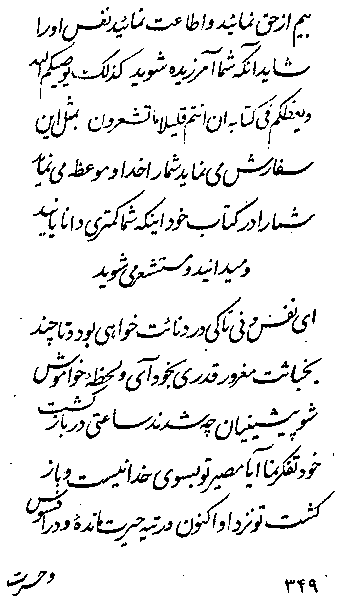 بیم از حق نمائید و اطاعت نمائید نفس او را
شاید آنکه شما آمرزیده شوید کذلک یوصیکم الله
و یعظکم فی کتابه ان انتم قلیلا ما تشعرون بمثل این
سفارش می نماید شما را خدا و موعظه می نماید
شما را در کتاب خود اینکه شما کمتری دانایانید
و میدانید و مستشعر می شوید
ای نفس دنی تا کی در دنائت خواهی بود و تا چند
بخباثت مغرور قدری بخود آی و لحظه خواموش
شو پیشینیان چه شدند ساعتی در بازگشت
خود تفکر نما آیا مصیر تو بسوی خدا نیست و باز
گشت تو نزد او اکنون در تیه حیرت مانده و در افسوس
و حسرت
۳۴۹